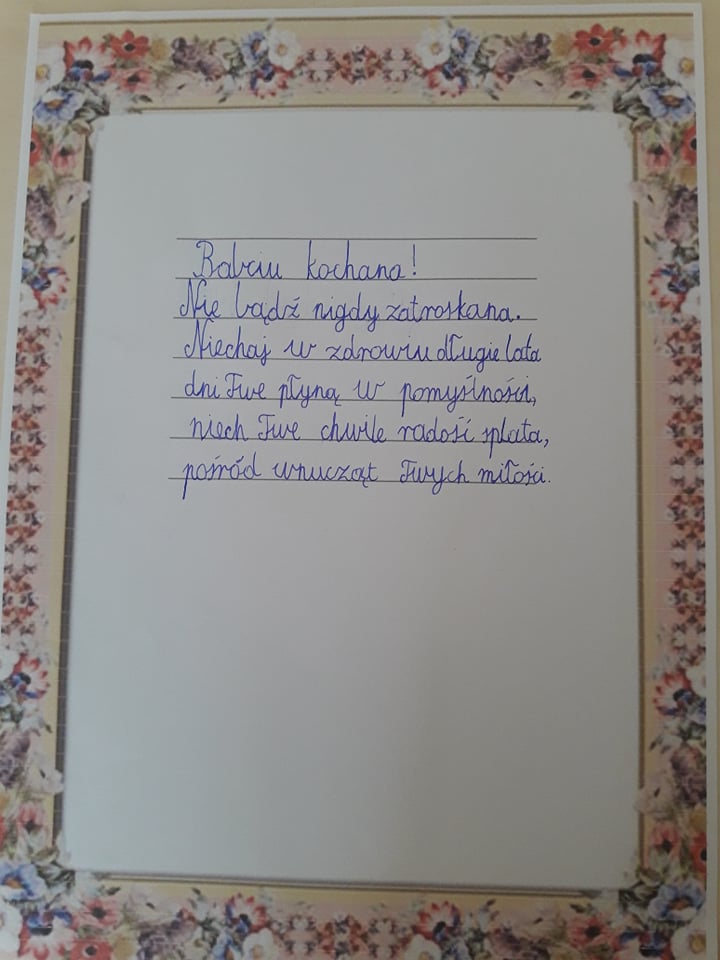 Babciu kochana!
Nie bądź nigdy zatroskana.
Niechaj w zdrowiu długie lata
dni Twe płyną w pomyślności,
niech Twe chwile radość splata,
pośród wnucząt Twych miłości.